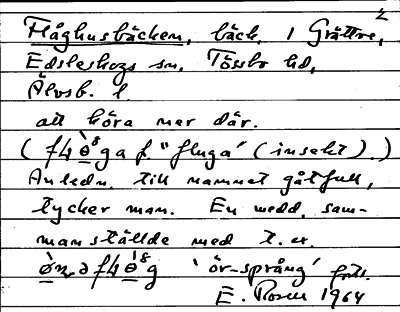 2
Flåghusbäcken, bäck, i Grättve,
Edsleskogs sn, Tössbo hd,
Älvsb. l.
att höra mer där.
(fł ga f. "fluga" (insekt).)
Anledn. till namnet gåtfull,
tycker man. En medd. sam-
manställde med t. ex.
'ör-språng' fots.
E. Rosen 1964